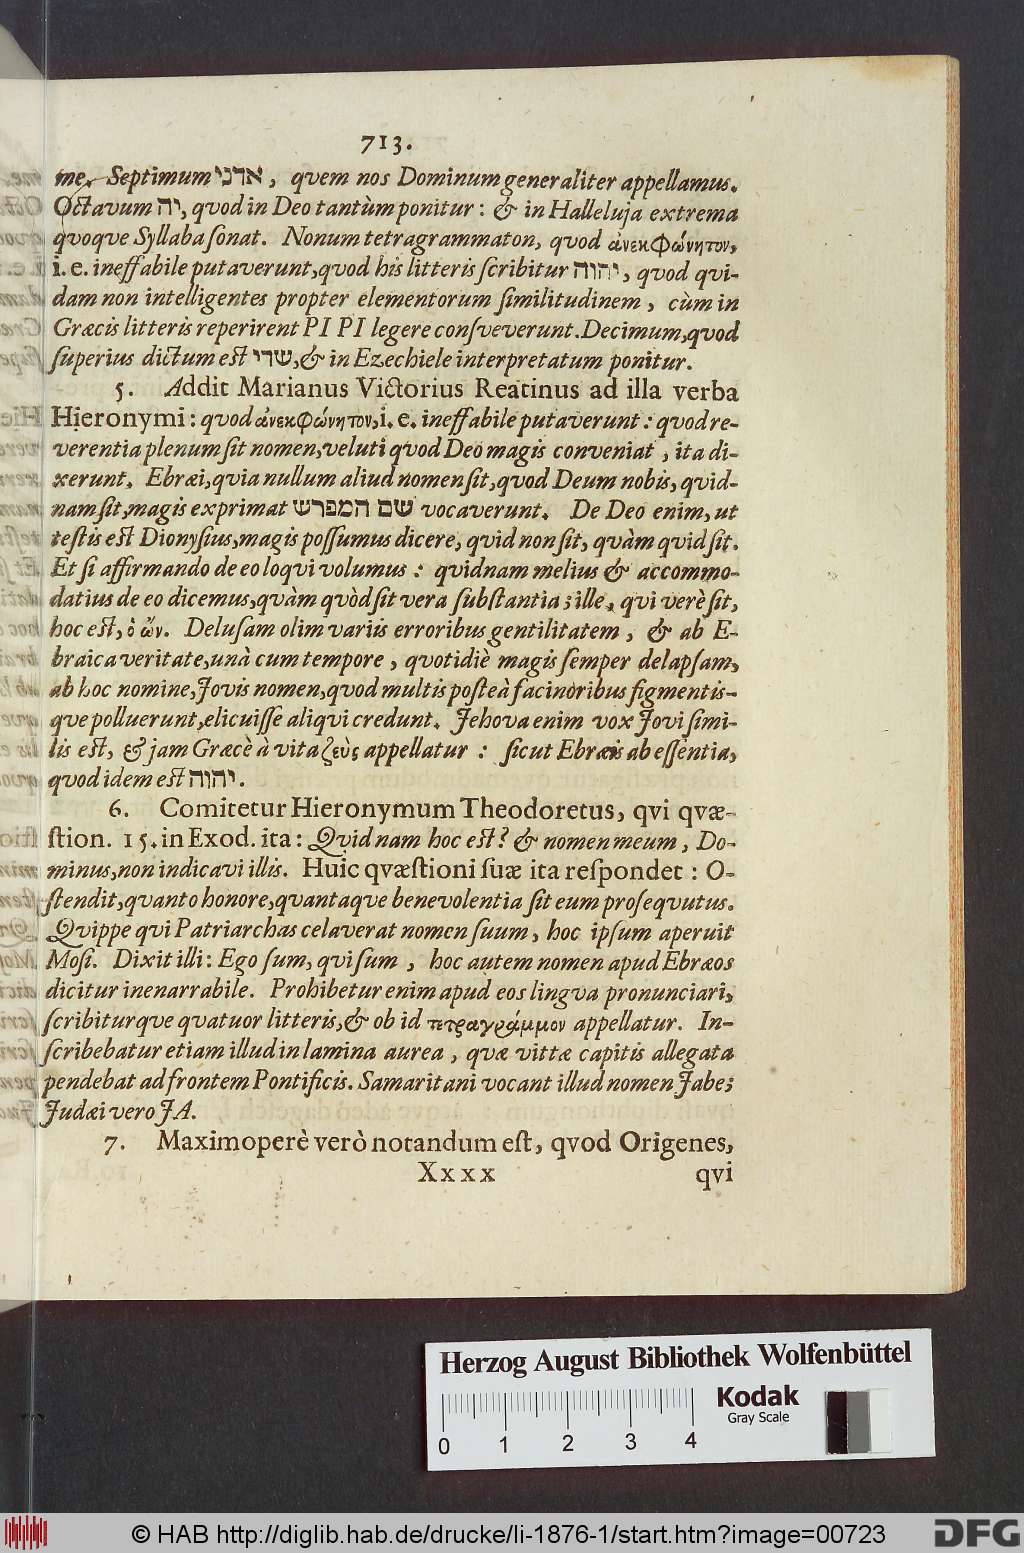 713.
me. Septimum אדני, quem nos Dominum generaliter appellamus.
Octavum יה, quod in Deo tantùm ponitur: & in Halleluja extrema
quoque Syllaba ſonat. Nonum tetragrammaton, quod ἀνεκφώνητον,
i. e. ineffabile putaverunt, quod his litteris ſcribitur יהוה, quod qui-
dam non intelligentes propter elementorum ſimilitudinem, cùm in
Græcis litteris reperirent PI PI legere conſveverunt. Decimum, quod
ſuperius dictum eſt שדי, & in Ezechiele interpretatum ponitur.
5. Addit Marianus Victorius Reatinus ad illa verba
Hieronymi: quod ἀνεκφώνητον, i. e. ineffabile putaverunt: quod re-
verentia plenum ſit nomen, veluti quod Deo magis conveniat, ita di-
xerunt. Ebræi, quia nullum aliud nomen ſit, quod Deum nobis, quid-
nam ſit, magis exprimat שם המפרש vocaverunt. De Deo enim, ut
teſtis eſt Dionyſius, magis poſſumus dicere, quid non ſit, quàm quid ſit.
Et ſi affirmando de eo loqui volumus: quidnam melius & accommo-
datius de eo dicemus, quàm quòd ſit vera ſubſtantia; ille, qui verè ſit,
hoc eſt, ὁ ὤν. Deluſam olim variis erroribus gentilitatem, & ab E-
braica veritate, unà cum tempore, quotidiè magis ſemper delapſam,
ab hoc nomine, Jovis nomen, quod multis poſteà facinoribus figmentis-
que polluerunt, elicuiſſe aliqui credunt. Jehova enim vox Jovi ſimi-
lis eſt, & jam Græcè à vita ζεὺς appellatur: ſicut Ebræis ab eſſentia,
quod idem eſt יהוה.
6. Comitetur Hieronymum Theodoretus, qvi qvæ-
ſtion. 15. in Exod. ita: Quid nam hoc eſt? & nomen meum, Do-
minus, non indicavi illis. Huic qvæſtioni ſuæ ita reſpondet: O-
ſtendit, quanto honore, quantaque benevolentia ſit eum proſequutus.
Quippe qui Patriarchas celaverat nomen ſuum, hoc ipſum aperuit
Moſi. Dixit illi: Ego ſum, qui ſum, hoc autem nomen apud Ebræos
dicitur inenarrabile. Prohibetur enim apud eos lingva pronunciari,
ſcribiturque quatuor litteris, & ob id τετραγράμμον appellatur. In-
ſcribebatur etiam illud in lamina aurea, quæ vittæ capitis allegata
pendebat ad frontem Pontificis. Samaritani vocant illud nomen Jabe;
Judæi vero JA.
7. Maximoperè verò notandum eſt, qvod Origenes,
Xxxx qvi
Herzog August Bibliothek Wolfenbüttel
Kodak
Gray Scale
0 1 2 3 4
© HAB http://diglib.hab.de/drucke/li-1876-1/start.htm?image=00723
DFG